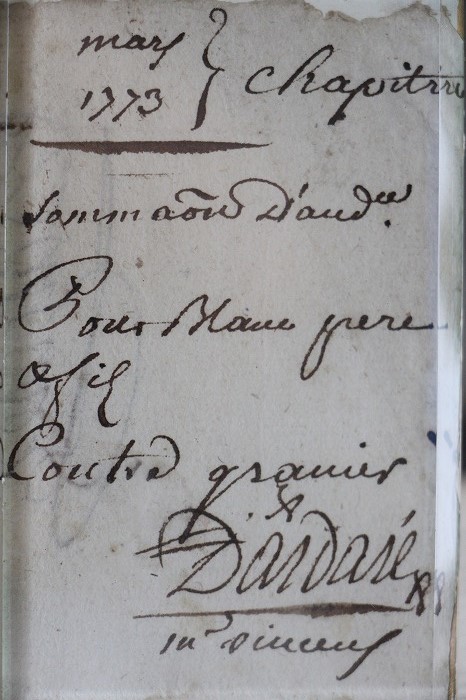 mars
1773 } chapitre
sommaõn d'aud.ce
Pour Blanc pere
& fil
Contre granier
& Dardarié
Mr vincens